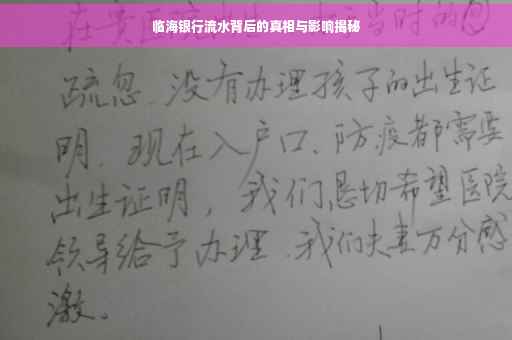 临海银行流水背后的真相与影响揭秘
当时的
疏忽、没有办理孩子的出生证
明、现在入户口、防疫都需要
出生证明，我们恳切希望医院
领导给予办理、我们夫妻万分感
激。